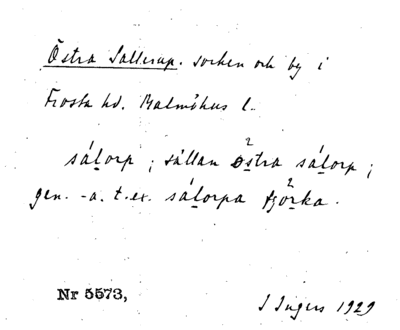 Östra Sallerup. socken och by i
Frosta hd. Malmöhus l.
sáḷorp ; sällan östra sáḷorp ;
gen. -a. t.ex. sáḷorpa
Nr 5573,
I Ingers 1929